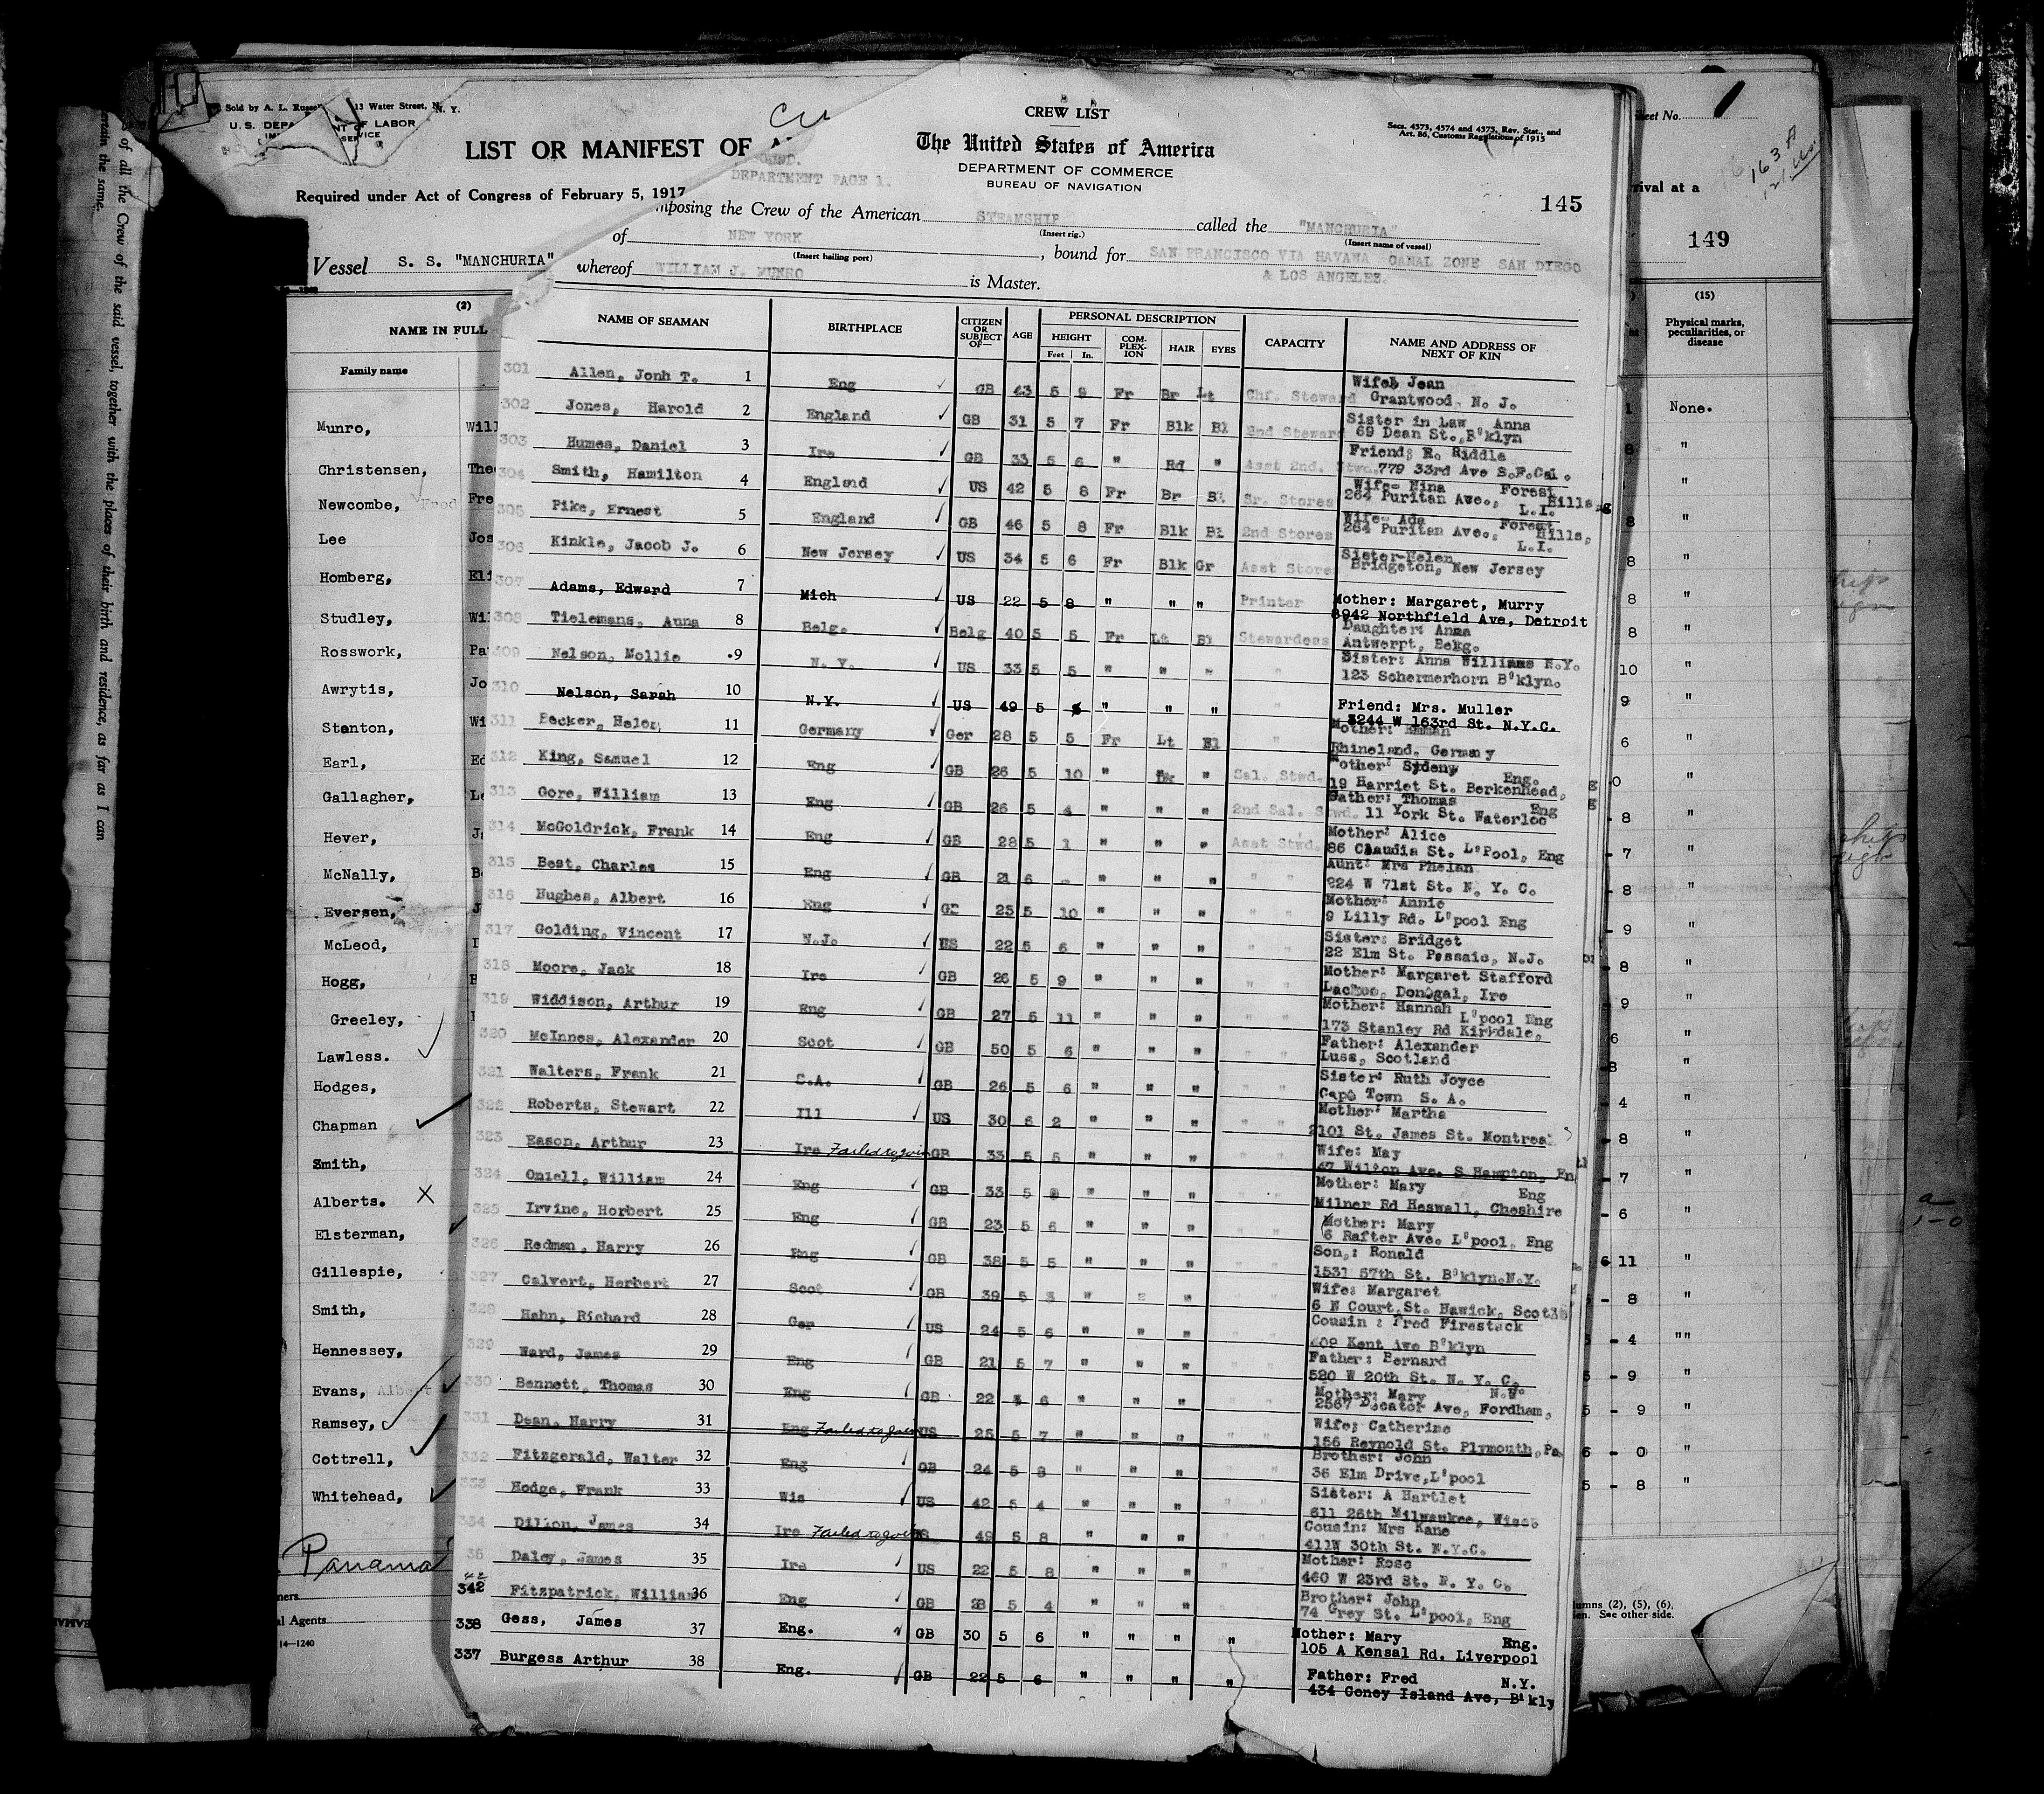 Sold by A. L. Russel 13 Water Street, N. Y.
U.S. DEPA NT OF LABOR
SERVICE
LIST OR MANIFEST OF
Required under Act of Congress of February 5, 1917
Vessel S. S. "MANCHURIA"
(2)
NAME IN FULL
Family name
Munro, Will
Christensen, The
Newcombe, Fred Fre
Lee Jos
Homberg, Eli
Studley, Wil
Rosswork, Pa
Awrytis, Jo
Stanton, Wi
Earl, Ed
Gallagher, Le
Hever,
McNally,
Eversen,
McLeod,
Hogg,
Greeley,
Lawless.
Hodges,
Chapman
Smith,
Alberts. X
Elsterman,
Gillespie,
Smith,
Hennessey,
Evans, Albert
Ramsey,
Cottrell,
Whitehead,
Panama
ners
l Agents
14—1240
of all the Crew of the said vessel, together with the places of their birth and residence, as far as I can
ertain the same.
CREW LIST
The United States of America
DEPARTMENT OF COMMERCE
BUREAU OF NAVIGATION
Secs. 4573, 4574 and 4575, Rev. Stat., and
Art. 86, Customs Regulations of 1915
OUND.
DEPARTMENT PAGE 1.
145
mposing the Crew of the American STEAMSHIP called the "MANCHURIA"
(Insert rig.) (Insert name of vessel)
of NEW YORK, bound for SAN FRANCISCO VIA HAVANA CANAL ZONE SAN DIEGO
(Insert hailing port)
& LOS ANGELES.
whereof WILLIAM J. MUNRO is Master.
NAME OF SEAMAN BIRTHPLACE CITIZEN OR SUBJECT OF— AGE PERSONAL DESCRIPTION CAPACITY NAME AND ADDRESS OF NEXT OF KIN
HEIGHT COMPLEXION HAIR EYES
Feet In.
301 Allen, Jonh T. 1 Eng GB 43 5 9 Fr Br Lt Chf. Steward Wife: Jean
Grantwood, N. J.
302 Jones, Harold 2 England GB 31 5 7 Fr Blk Bl 2nd Steward Sister in Law Anna
69 Dean St., B'klyn
303 Humes, Daniel 3 Ire GB 33 5 6 " Rd " Asst 2nd. Stwd. Friend: R. Riddle
779 33rd Ave S.F.Cal.
304 Smith, Hamilton 4 England US 42 5 8 Fr Br Bl Sr. Stores Wife- Nina Forest
264 Puritan Ave., Hills,
L.I.
305 Pike, Ernest 5 England GB 46 5 8 Fr Blk Bl 2nd Stores Wife- Ada Forest
264 Puritan Ave., Hills,
L.I.
306 Kinkle, Jacob J. 6 New Jersey US 34 5 6 Fr Blk Gr Asst Stores Sister-Helen
Bridgeton, New Jersey
307 Adams, Edward 7 Mich US 22 5 8 " " " Printer Mother: Margaret, Murry
8942 Northfield Ave, Detroit
308 Tielemans, Anna 8 Belg. Belg 40 5 5 Fr Lt Bl Stewardess Daughter: Anna
Antwerpt, Belg.
309 Nelson, Mollie 9 N. Y. US 33 5 5 " " " " Sister: Anna Williams N.Y.
123 Schermerhorn B'klyn.
310 Nelson, Sarah 10 N.Y. US 49 5 " " " " Friend: Mrs. Muller
3244 W 163rd St. N.Y.C.
311 Becker, Helen 11 Germany Ger 28 5 5 Fr Lt Bl " Mother: Emmah
Rhineland, Germany
312 King, Samuel 12 Eng GB 26 5 10 " " Sal. Stwd. Mother: Sydeny Eng.
19 Harriet St. Berkenhead,
313 Gore, William 13 Eng GB 26 5 4 " " " 2nd Sal. Stwd. Father: Thomas Eng
11 York St. Waterloo
314 McGoldrick, Frank 14 Eng GB 28 5 1 " " " Asst Stwd. Mother: Alice
86 Claudia St. L'Pool, Eng
315 Best, Charles 15 Eng GB 21 6 - " " " " " Aunt: Mrs Phelan
224 W 71st St. N. Y. C.
316 Hughes, Albert 16 Eng GB 23 5 10 " " " " " Mother: Annie
9 Lilly Rd. L'pool Eng
317 Golding, Vincent 17 N.J. US 22 5 6 " " " " " Sister: Bridget
22 Elm St. Passaic, N.J.
318 Moore, Jack 18 Ire GB 26 5 9 " " " " " Mother: Margaret Stafford
Donegal, Ire
319 Widdison, Arthur 19 Eng GB 27 5 11 " " " " " Mother: Hannah L'pool Eng
173 Stanley Rd Kirkdale,
320 McInnes, Alexander 20 Scot GB 50 5 6 " " " " " Father: Alexander
Luss, Scotland
321 Walters, Frank 21 S.A. GB 26 5 6 " " " " " Sister: Ruth Joyce
Cape Town S. A.
322 Roberts, Stewart 22 Ill US 30 6 2 " " " " " Mother: Martha
2101 St. James St. Montreal
323 Eason, Arthur 23 Ire Failed to join GB 33 5 5 " " " " " Wife: May
47 Wilton Ave. S Hampton, En
324 Oniell, William 24 Eng GB 33 5 " " " " " Mother: Mary Eng
Milner Rd Heswall, Cheshire
325 Irvine, Horbert 25 Eng GB 23 5 6 " " " " " Mother: Mary
6 Rafter Ave. L'pool, Eng
326 Redman, Harry 26 Eng GB 38 5 5 " " " " " Son,: Ronald
1531 57th St. B'klyn.N.Y.
327 Calvert, Herbert 27 Scot GB 39 5 " " " " " Wife: Margaret
6 N Court St. Hawick, Scot
328 Hahn, Richard 28 Ger US 24 5 6 " " " " " Cousin : Fred Firestack
409 Kent Ave B'klyn
329 Ward, James 29 Eng GB 21 5 7 " " " " " Father: Bernard
520 W 20th St. N. Y. C.
330 Bennett, Thomas 30 Eng GB 22 5 6 " " " " " Mother: Mary
2567 Decator Ave, Fordham,
331 Dean, Harry 31 Eng Failed to join US 25 5 7 " " " " " Wife: Catherine
156 Reynold St. Plymouth, Pa
332 Fitzgerald, Walter 32 Eng GB 24 5 8 " " " " Brother: John
36 Elm Drive, L'pool
333 Hodge, Frank 33 Wis US 42 5 4 " " " " " Sister: A Hartlet
611 26th Milwaukee, Wisc
334 Dillon, James 34 Ire Failed to join 49 5 8 " " " " " Cousin: Mrs Kane
411W 30th St. N.Y.C.
36 Daley, James 35 Ire US 22 5 8 " " " " Mother: Rose
460 W 23rd St. N. Y. C.
342 Fitzpatrick, William 36 Eng GB 28 5 4 " " " " " Brother: John
74 Grey St. L'pool, Eng
338 Gess, James 37 Eng. GB 30 5 6 " " " " Mother: Mary Eng.
105 A Kensal Rd. Liverpool
337 Burgess Arthur 38 Eng. GB 22 5 6 " " " " Father: Fred N.Y.
434 Coney Island Ave, B'kly
heet No. 1
163 A
rival at a
149
(15)
Physical marks, peculiarities, or disease
None.
lumns (2), (5), (6),
en. See other side.